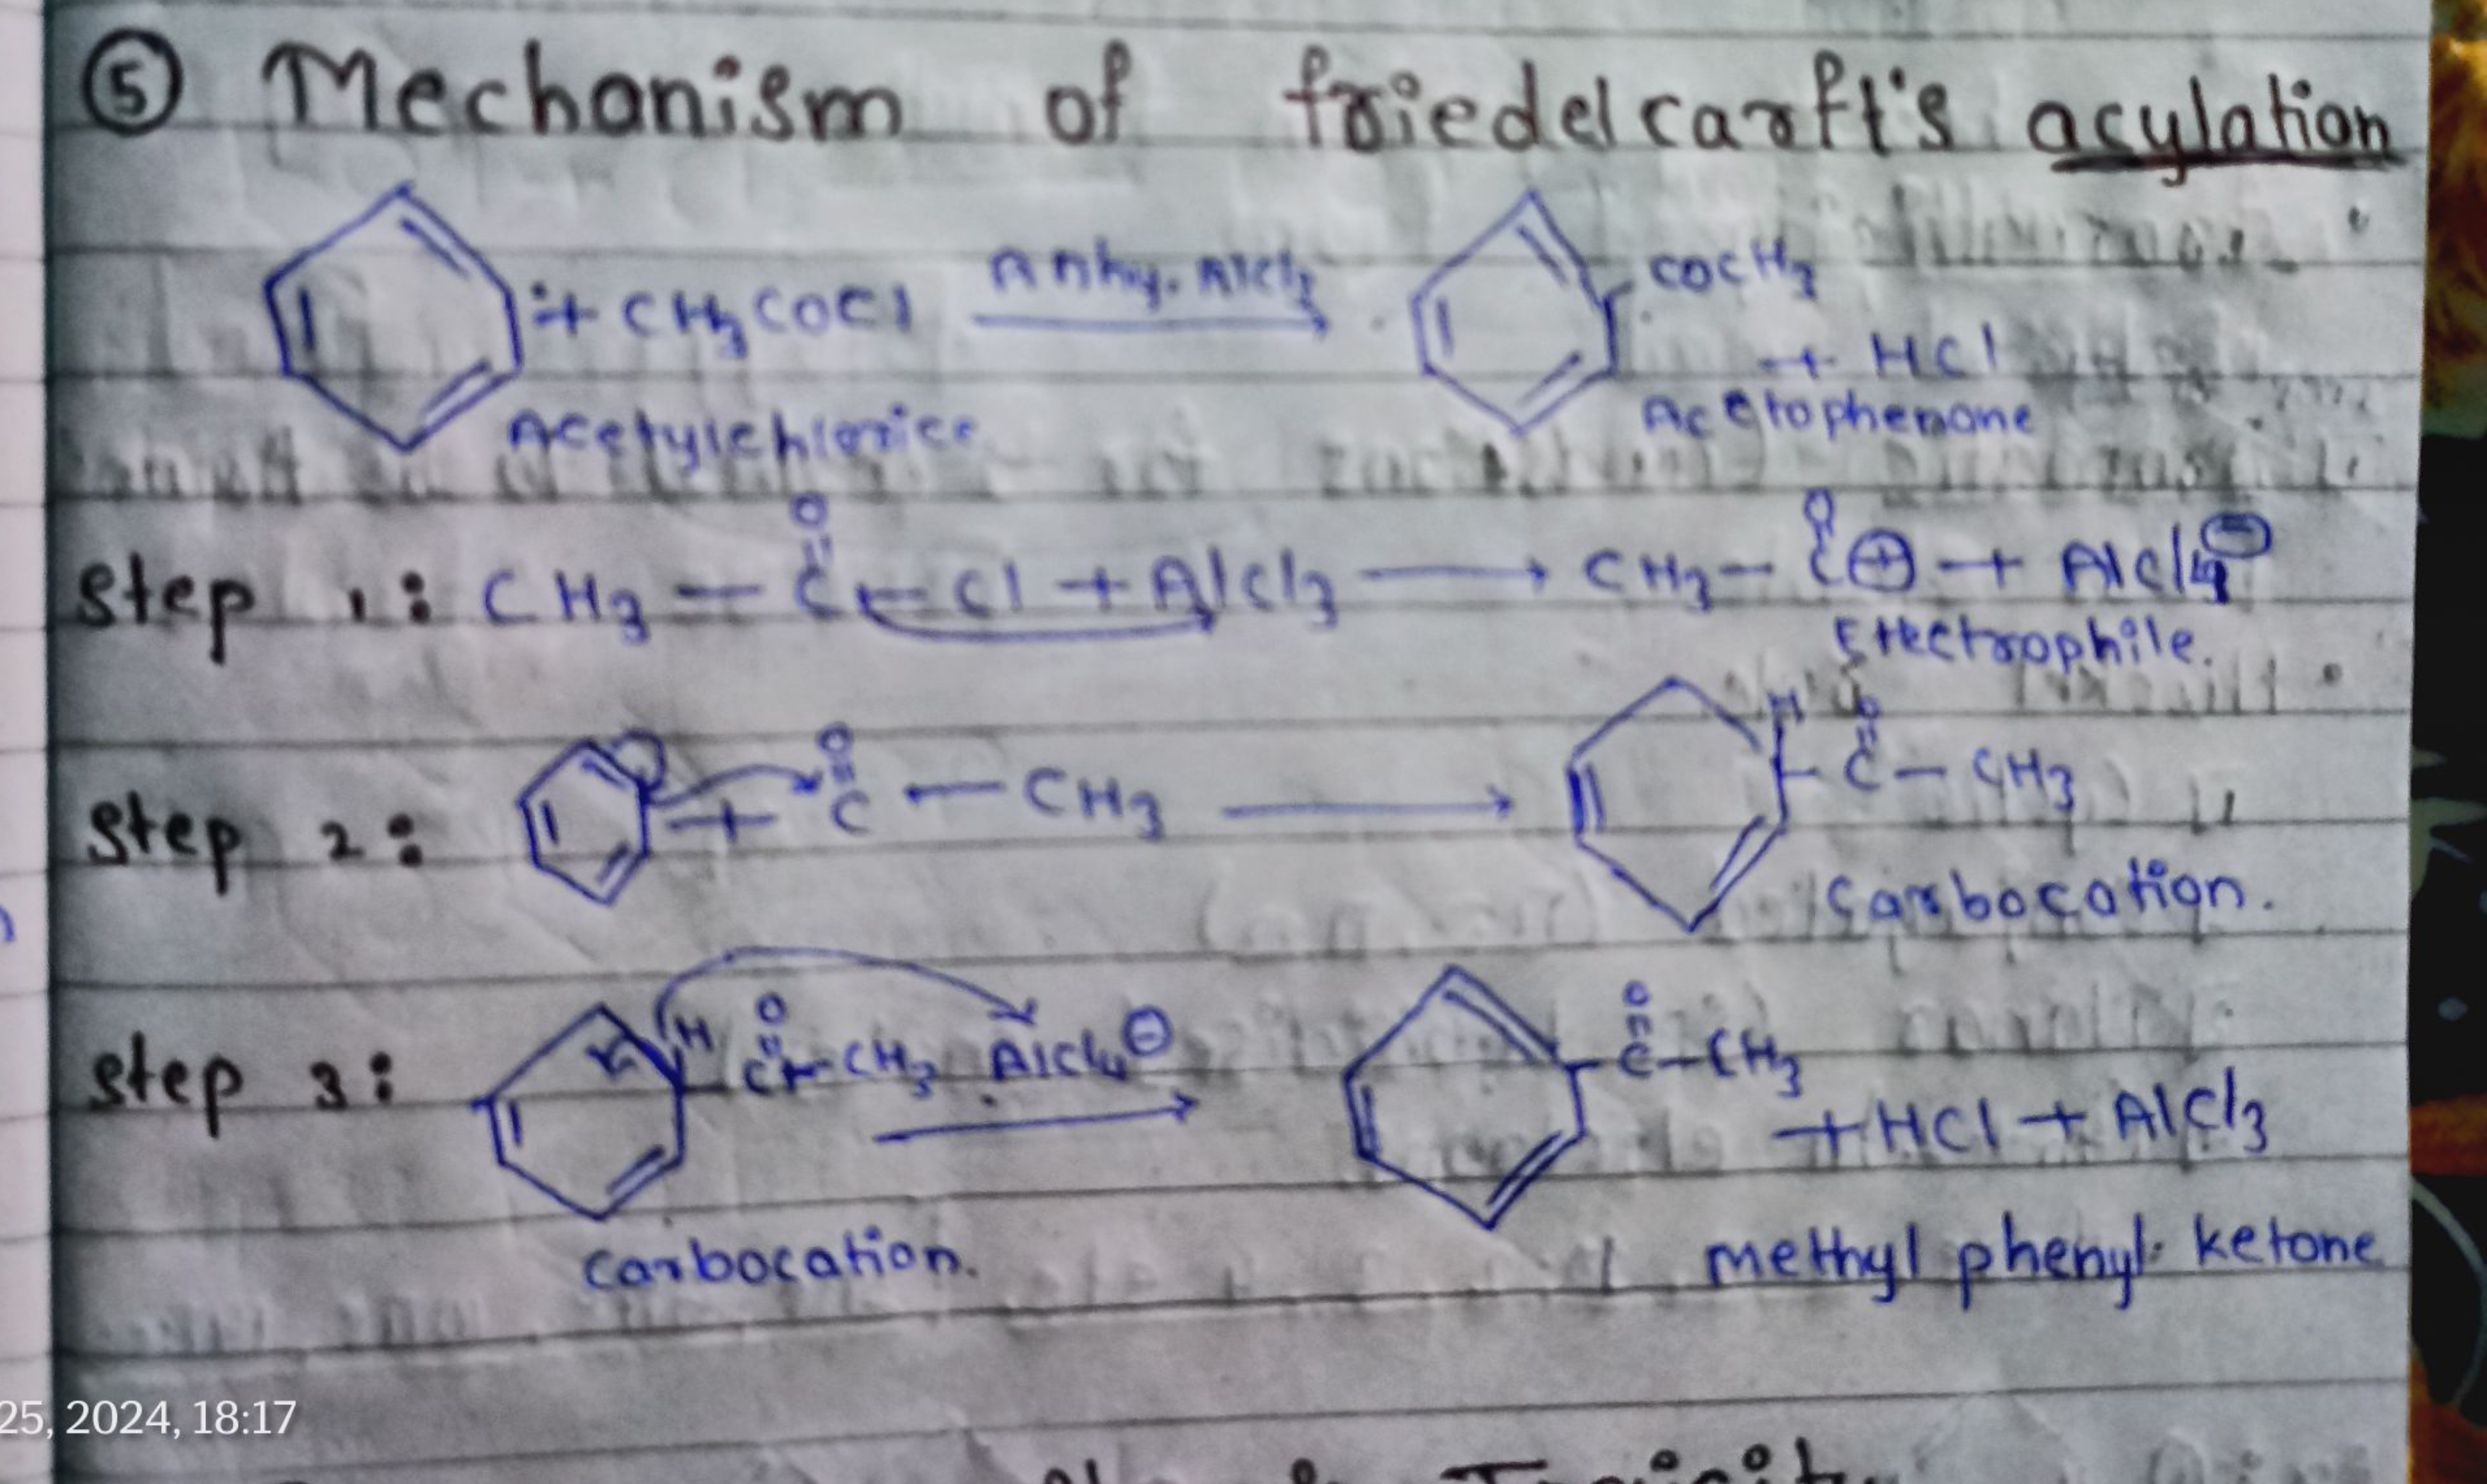 ⑤ Mechanism of friedelcarft's acylation
+ CH3COCl Anhy. AlCl3 COCH3
+ HCl
Acetylchlorice Acetophenone
O O
Step 1: CH3 — C — Cl + AlCl3 → CH3 — C ⊕ + AlCl4⊖
Electrophile.
Step 2: + O
C — CH3 → H O
C — CH3
Carbocation.
Step 3: H O
C — CH3 AlCl4⊖ → O
C — CH3
+ HCl + AlCl3
Carbocation. methyl phenyl ketone
25, 2024, 18:17